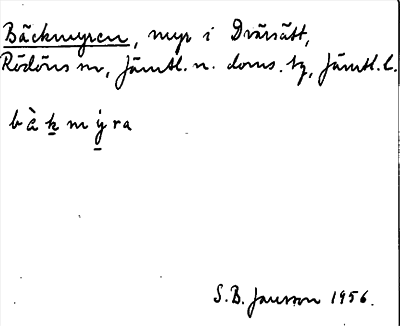 Bäckmyren, myr i Dvärsätt,
Rödöns sn, Jämtl. n. doms. tg, Jämtl. l.
bàkmýra
S.B. Jansson 1956.